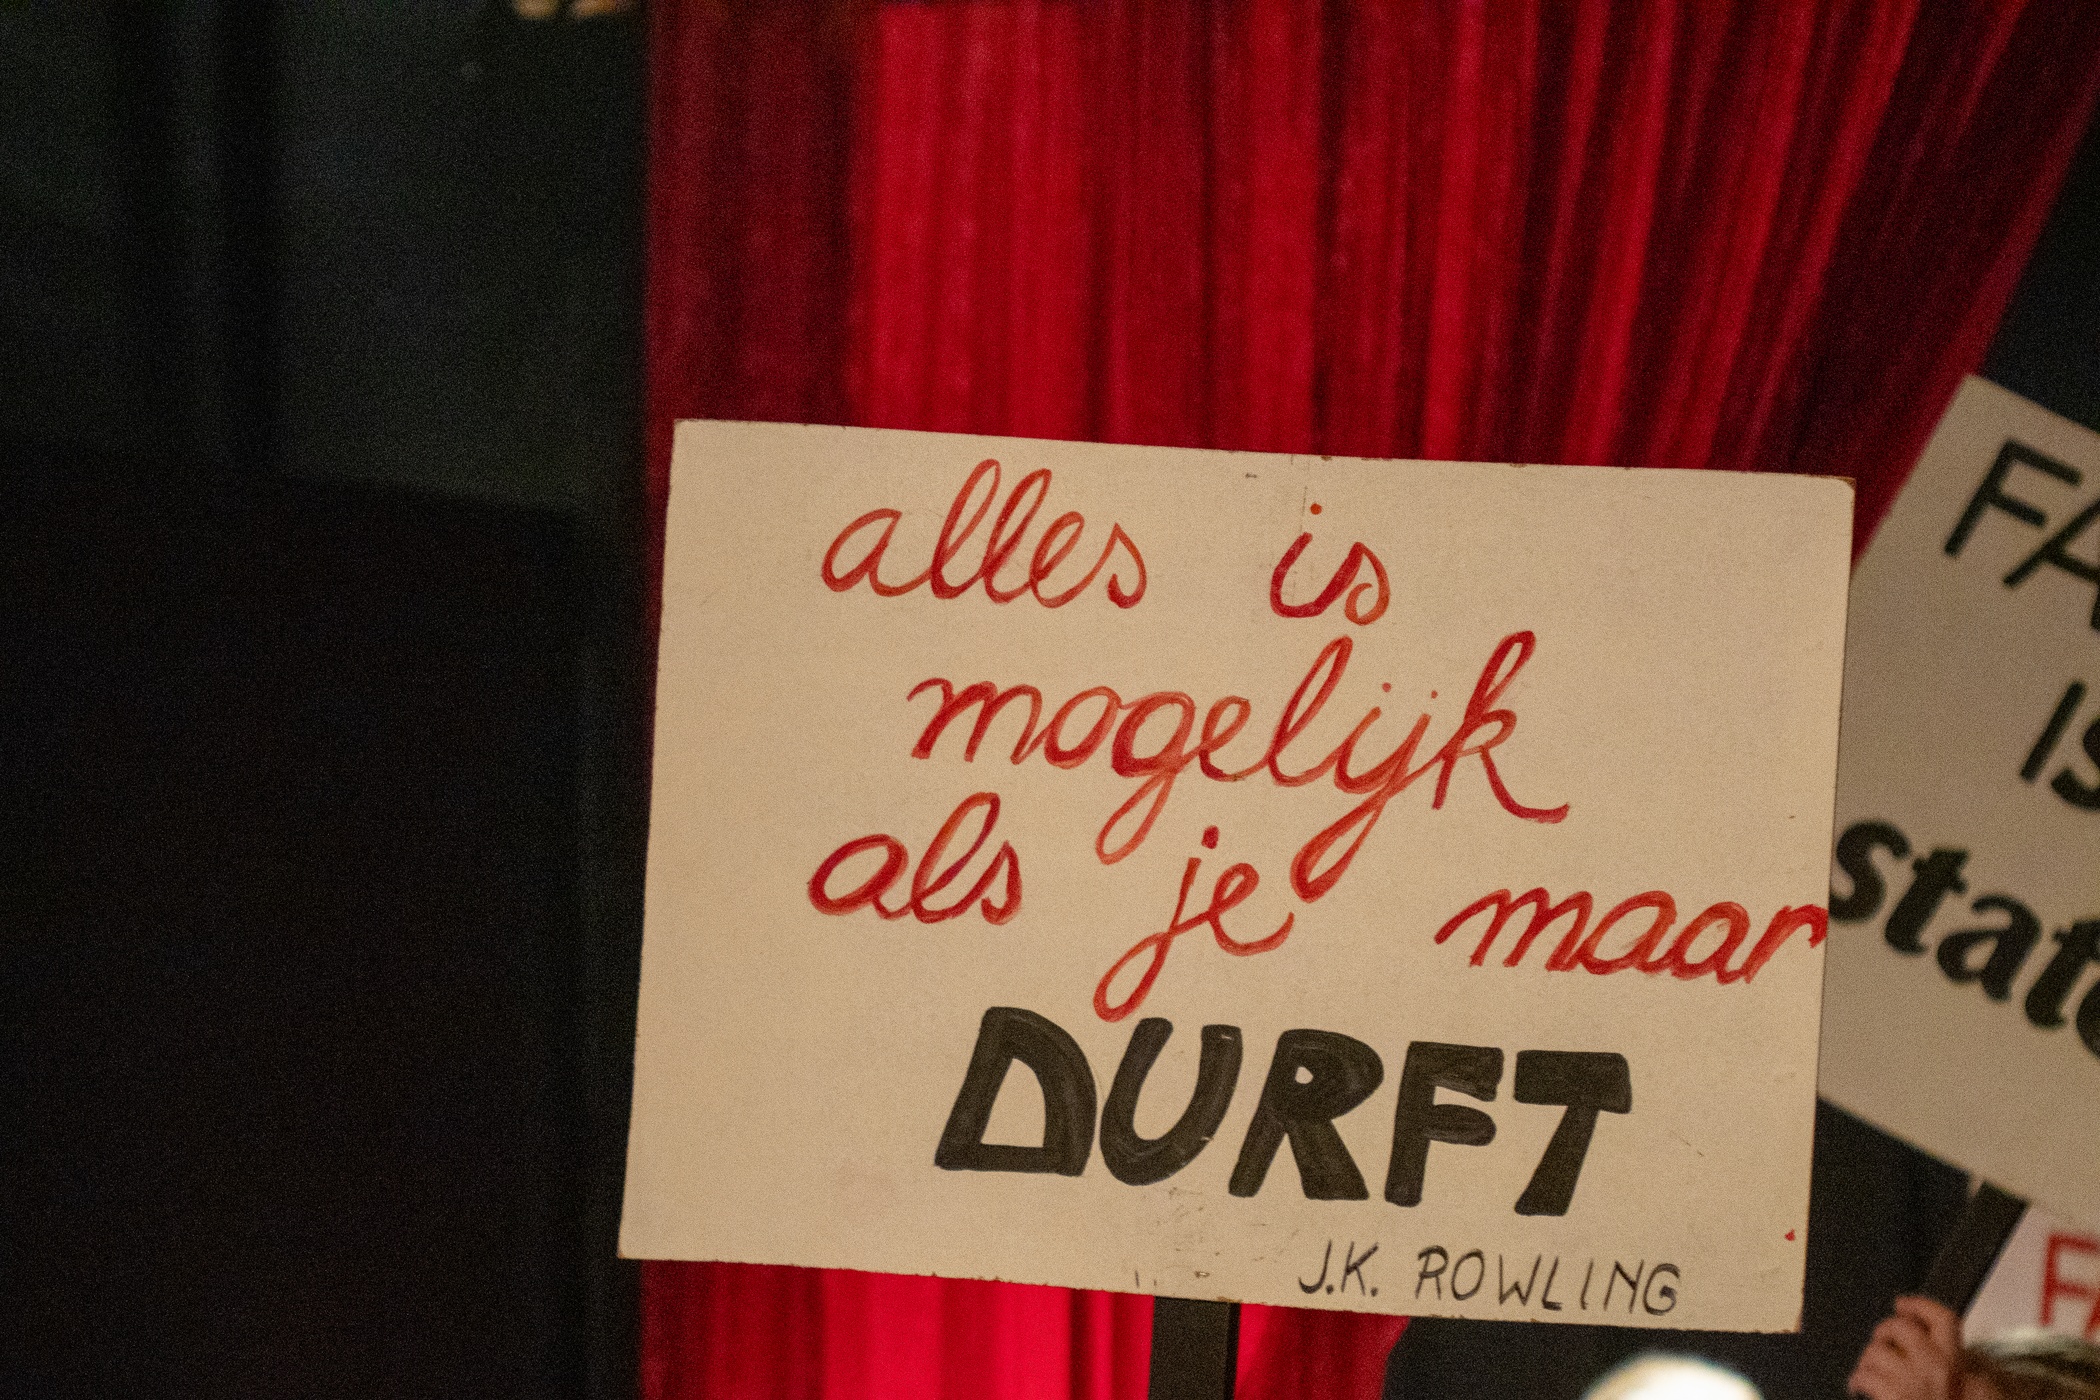 alles is
mogelijk
als je maar
DURFT
J.K. ROWLING
FA
IS
state
F